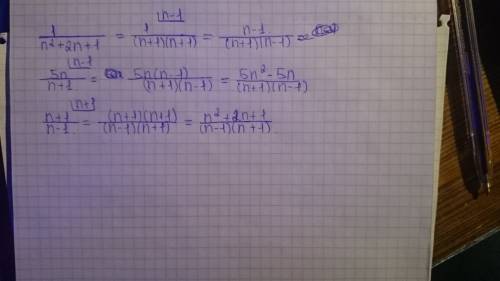 1/(n²+2n+1) = 1^{|n-1}/((n+1)(n+1)) = (n-1)/((n+1)(n-1)) =
5n^{|n-1}/(n+1) = 5n(n-1)/((n+1)(n-1)) = (5n²-5n)/((n+1)(n-1))
(n+1)^{|n+1}/(n-1) = (n+1)(n+1)/((n-1)(n+1)) = (n²+2n+1)/((n-1)(n+1))